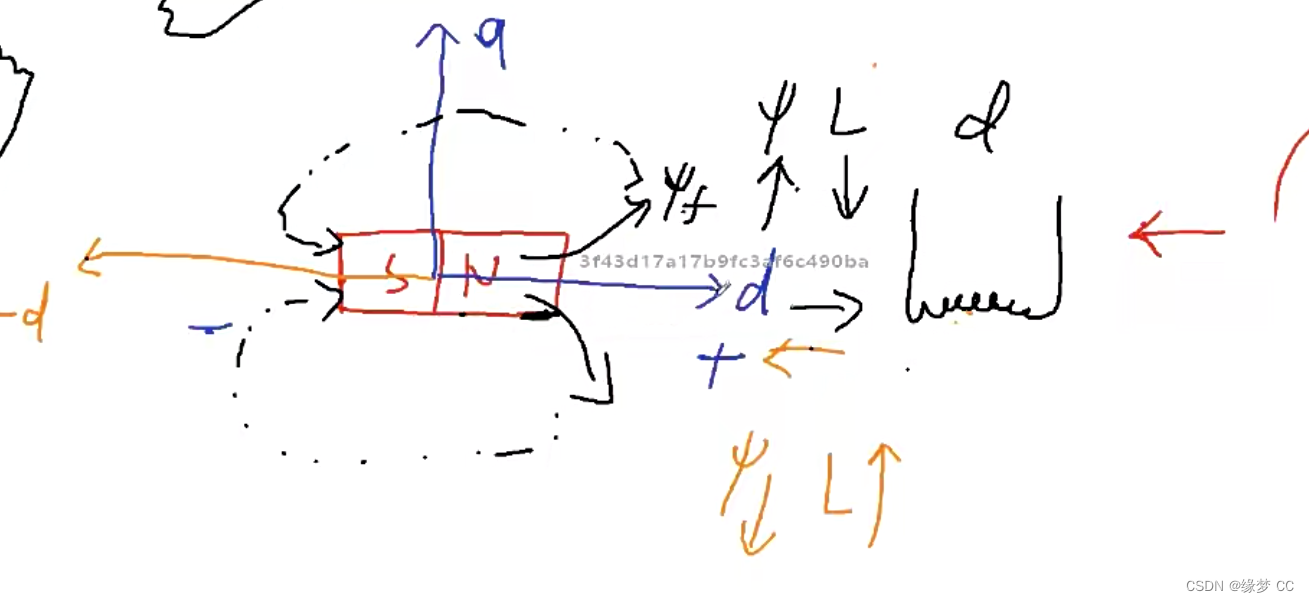 q
ψ L d
ψf ↑ ↓
S N
3f43d17a17b9fc3af6c490ba
d →
-d
-
+ ←
ψ↓ L↑
CSDN @缘梦 CC